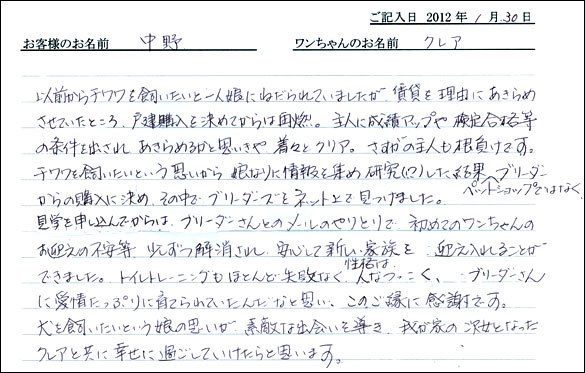 ご記入日 2012 年 1 月 30 日
お客様のお名前 中野 ワンちゃんのお名前 クレア
以前からチワワを飼いたいと一人娘にねだられていましたが、賃貸を理由にあきらめ
させていたところ、戸建購入を決めてからは再燃。主人に成績アップや検定合格等
の条件を出され、あきらめるかと思いきや着々とクリア。さすがの主人も根負けです。
チワワを飼いたいという思いから娘なりに情報を集め研究(?)した結果、ブリーダー
ペットショップではなく、
からの購入に決め、その中でブリーダーズをネット上で見つけました。
見学を申し込んでからは、ブリーダーさんとのメールのやりとりで、初めてのワンちゃんの
お迎えの不安等、少しずつ解消され、安心して新しい家族を迎え入れることが
できました。トイレトレーニングもほとんど失敗なく、性格は、人なつっこく、…ブリーダーさん
に愛情たっぷりに育てられていたんだなと思い、このご縁に感謝です。
犬を飼いたいという娘の思いが素敵な出会いを導き、我が家の次女となった
クレアと共に幸せに過ごしていけたらと思います。